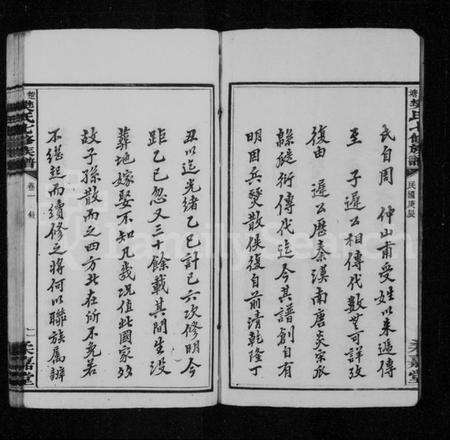 樊氏七修族譜
民國庚辰
氏自周 仲山甫受姓以來遞傳
至 子遲公相傳代數無可詳攷
復由 遲公歷秦漢南唐炎宋承
緜緜衍傳代迄今其譜創自有
明因兵燹散佚復自前清乾隆丁
丑以迄光緒乙巳計已六次修明今
距乙巳忽又三十餘載其間生没
葬地嫁娶不知凡幾況值此國家多
故子孫散而之四方北在所不免若
不繼起而續修之將何以聯族屬辨
樊氏七修族譜
卷一